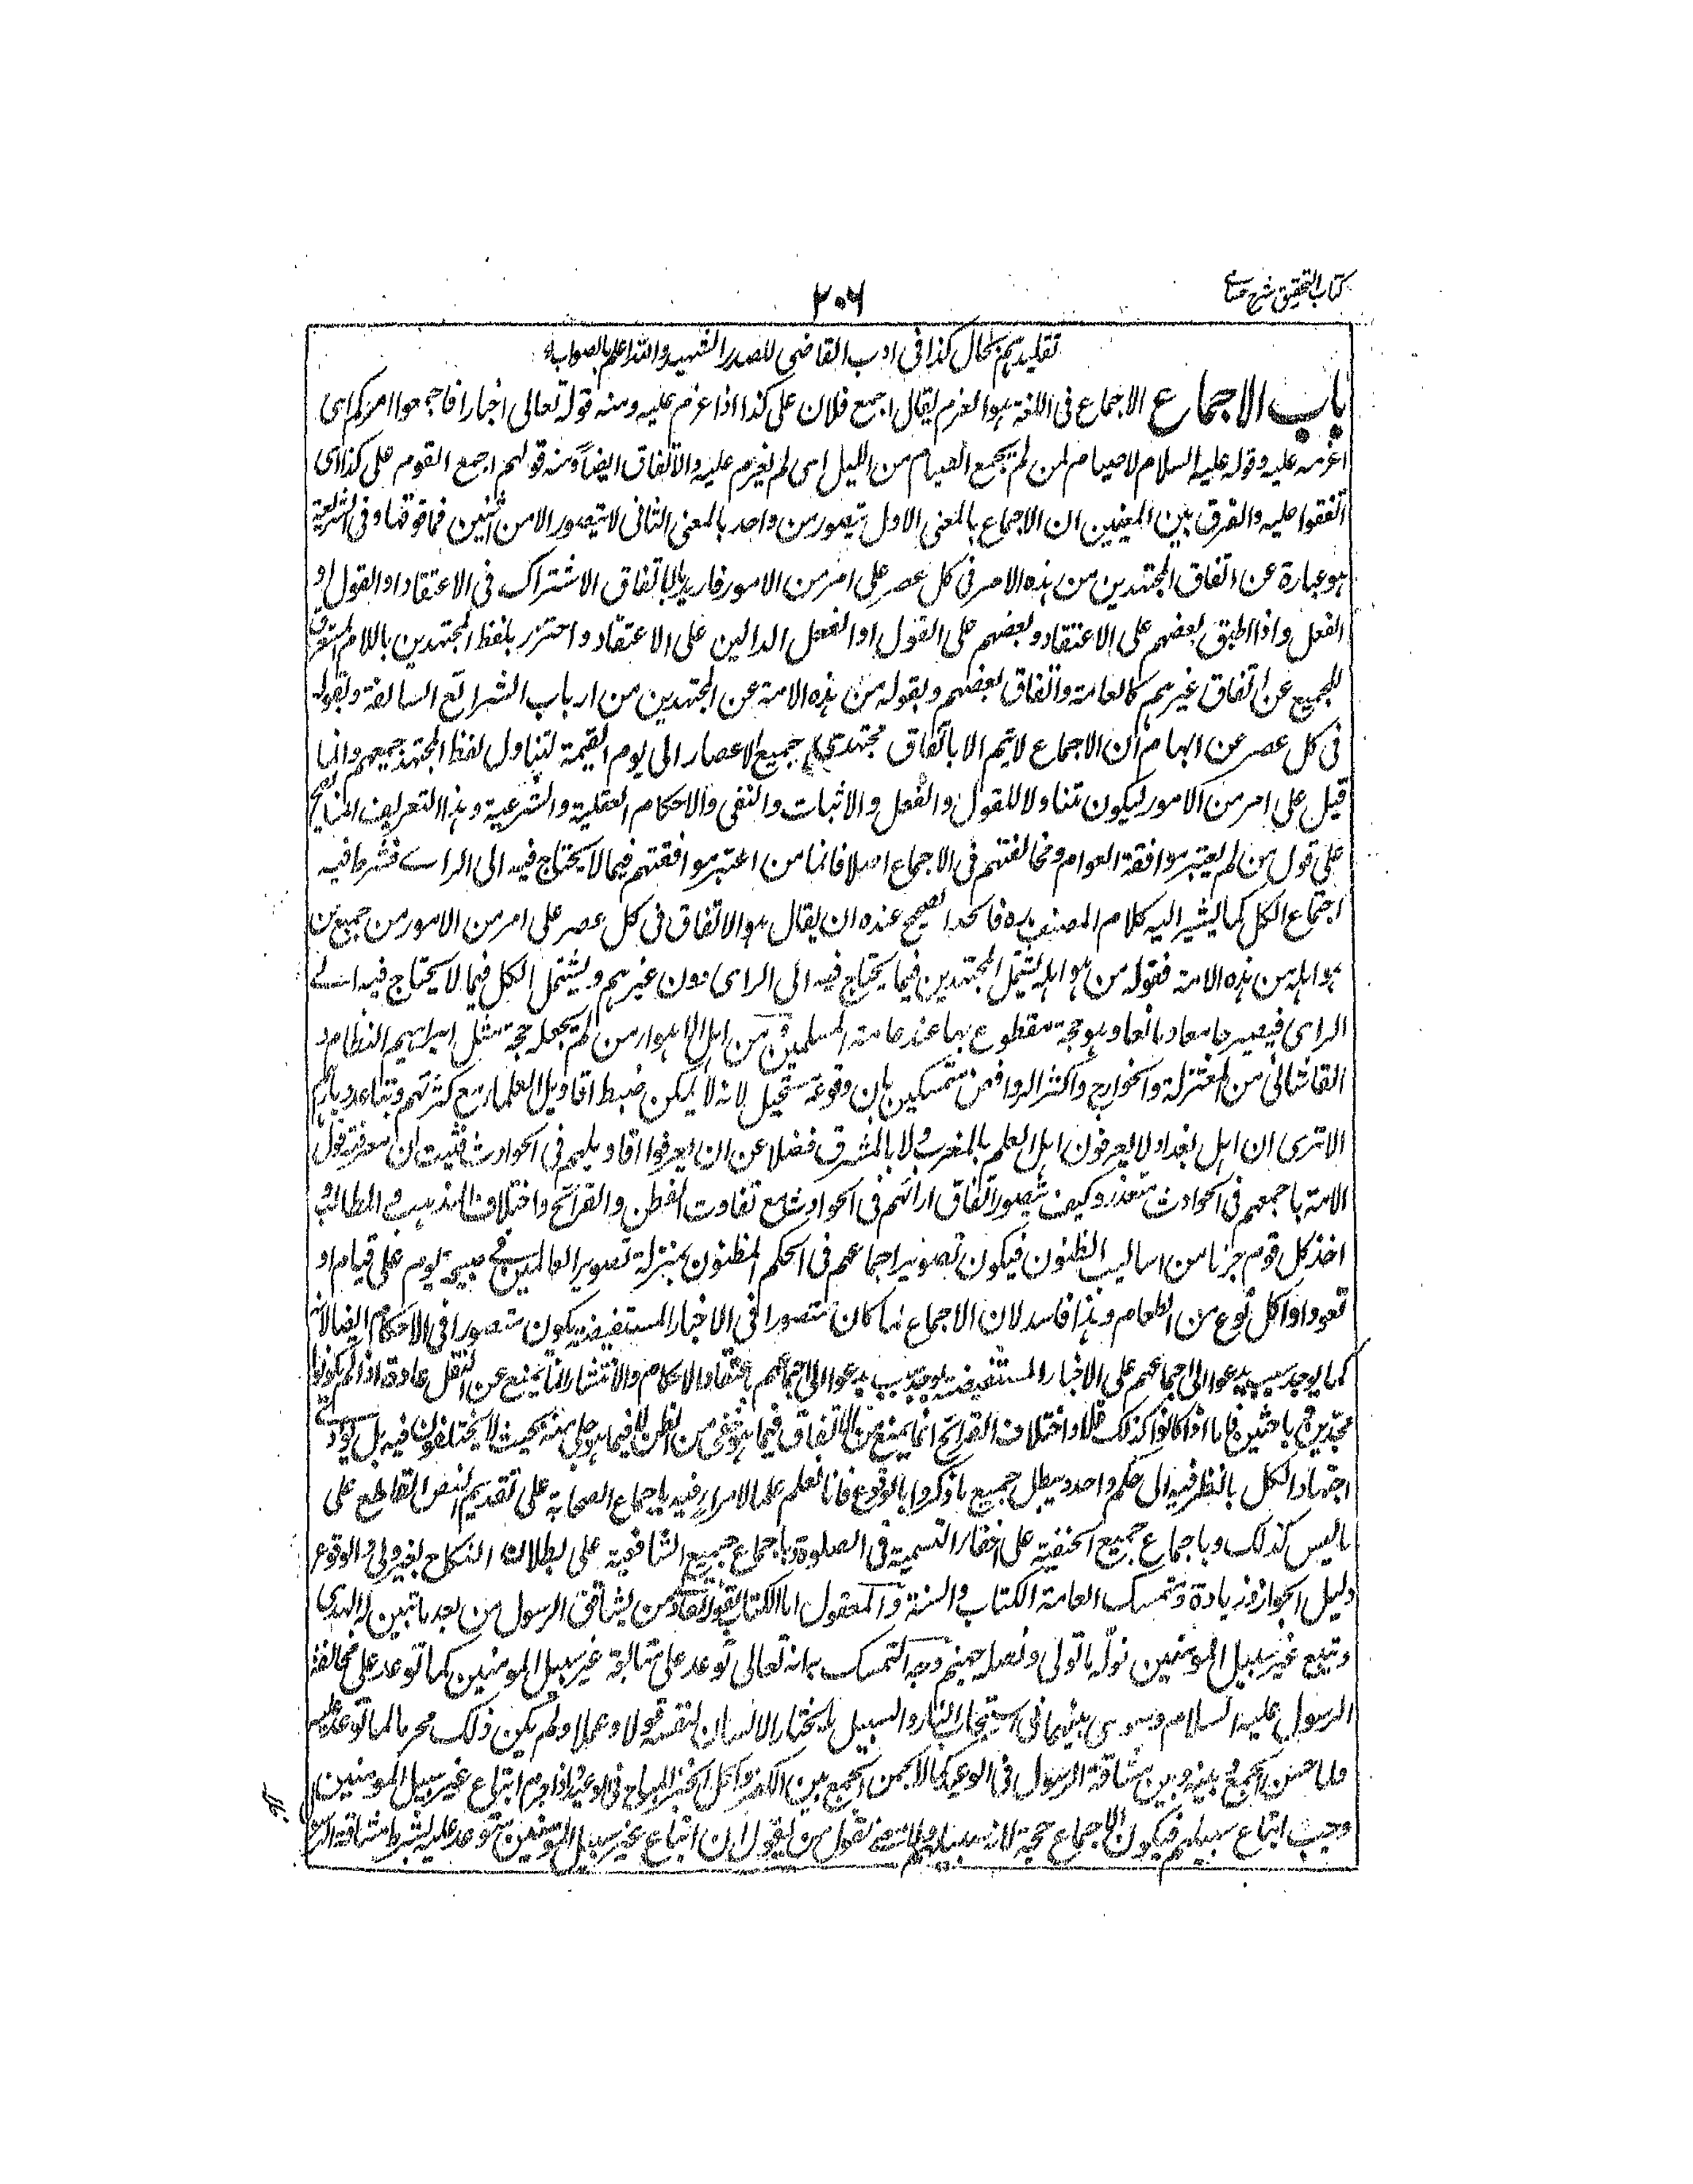 كتاب التحقيق شرح حسامي
٢٠٦
تقليدهم بحال كذا في ادب القاضي للصدر الشهيد والله اعلم بالصواب
باب الاجماع الاجماع في اللغة هو العزم يقال اجمع فلان على كذا اذا عزم عليه ومنه قوله تعالى اخبارا فاجمعوا امركم اى
اعزموا عليه وقوله عليه السلام لاصيام لمن لم يجمع الصيام من الليل اى لم يعزم عليه والاتفاق ايضاً ومنه قولهم اجمع القوم على كذا اى
اتفقوا عليه والفرق بين المعنيين ان الاجماع بالمعنى الاول يتصور من واحد بالمعنى الثانى لا يتصور الا من اثنين فما فوقها وفى الشريعة
هو عبارة عن اتفاق المجتهدين من هذه الامة فى كل عصر على امر من الامور فاريد بالاتفاق الاشتراك فى الاعتقاد او القول او
الفعل واذا اطبق بعضهم على الاعتقاد وبعضهم على القول او الفعل الدالين على الاعتقاد واحترز بلفظ المجتهدين باللام المستغرق
للجميع عن اتفاق غيرهم كالعامة واتفاق بعضهم وبقوله من هذه الامة عن المجتهدين من ارباب الشرائع السالفة وبقوله
فى كل عصر عن ايهام ان الاجماع لا يتم الا باتفاق مجتهدى جميع الاعصار الى يوم القيمة لتناول لفظ المجتهد جميعهم وانما
قيل على امر من الامور ليكون متناولا للقول والفعل والاثبات والنفى والاحكام العقلية والشرعية وهذا التعريف انما يصح
على قول من لم يعتبر موافقة العوام ومخالفتهم فى الاجماع اصلا فاما من اعتبر موافقتهم فيما لا يحتاج فيه الى الراے فشرط فيه
اجتماع الكل كما يشير اليه كلام المصنف ره فالحد الصحيح عنده ان يقال هو الاتفاق فى كل عصر على امر من الامور من جميع من
هو اهله من هذه الامة فقوله من هو اهله يشمل المجتهدين فيما يحتاج فيه الى الراى دون غيرهم ويشتمل الكل فيما لا يحتاج فيه الے
الراى فيصير جامعا ومانعا وهو حجة مقطوع بها عند عامة المسلمين ومن اهل الاهواء من لم يجعله حجة مثل ابراهيم النظام و
القاشانى من المعتزلة والخوارج واكثر الروافض متمسكين بان وقوعه مستحيل لانه لا يمكن ضبط اقاويل العلماء مع كثرتهم وتباعد ديارهم
الا ترى ان اهل بغداد لا يعرفون اهل العلم بالمغرب ولا بالمشرق فضلا عن ان يعرفوا اقاويلهم فى الحوادث فثبت ان معرفة قول
الامة باجمعهم فى الحوادث متعذر وكيف يتصور اتفاق ارائهم فى الحوادث مع تفاوت الفطن والقرائح واختلاف المذاهب والمطالب و
اخذ كل قوم جزءا من اساليب الظنون فيكون تصوير اجماعهم فى الحكم المظنون بمنزلة تصوير العالمين فى صبيحة يوم على قيام او
قعود او اكل نوع من الطعام وهذا فاسد لان الاجماع لما كان متصورا فى الاخبار المستفيضة يكون متصورا فى الاحكام ايضا لانه
كما يوجد سبب يدعو الى اجماعهم على الاخبار المستفيضة يوجد سبب يدعو الى اجماعهم باعتقاد الاحكام والانتشار انما يمنع عن النقل عادة اذا لم يكونوا
مجدين باحثين فاما اذا كانوا كذلك فلا واختلاف القرائح انما يمنع من الاتفاق فيما هو خفى من الظن لا فيما هو جلى منه بحيث لا يختلفون فيه بل يؤدى
اجتهاد الكل بالنظر فيه الى حكم واحد ويبطل جميع ما ذكروا بالوقوع فانا نعلم علما لا مراء فيه باجماع الصحابة على تقديم النص القاطع على
ما ليس كذلك وباجماع جميع الحنفية على اخفاء التسمية فى الصلوة وباجماع جميع الشافعية على بطلان النكاح بغير ولى والوقوع
دليل الجواز وزيادة وتمسك العامة الكتاب والسنة والمعقول اما الكتاب فقوله تعالى ومن يشاقق الرسول من بعد ما تبين له الهدى
ويتبع غير سبيل المومنين نوله ما تولى ونصله جهنم وجه التمسك به انه تعالى توعد على متابعة غير سبيل المومنين كما توعد على مخالفة
الرسول عليه السلام وسوى بينهما فى استيجاب النار والسبيل ما يختار الانسان لنفسه قولا وعملا ولو لم يكن ذلك محرما لما توعد عليه
ولما حسن الجمع بينه وبين مشاقة الرسول فى الوعيد كما لا يحسن الجمع بين الكفر واكل الخبز المباح فى الوعيد واذا حرم اتباع غير سبيل المومنين
وجب اتباع سبيلهم فيكون الاجماع حجة لانه سبيلهم ولا معنى لقول من يقول ان اتباع غير سبيل المومنين متوعد عليه بشرط مشاقة الرسول